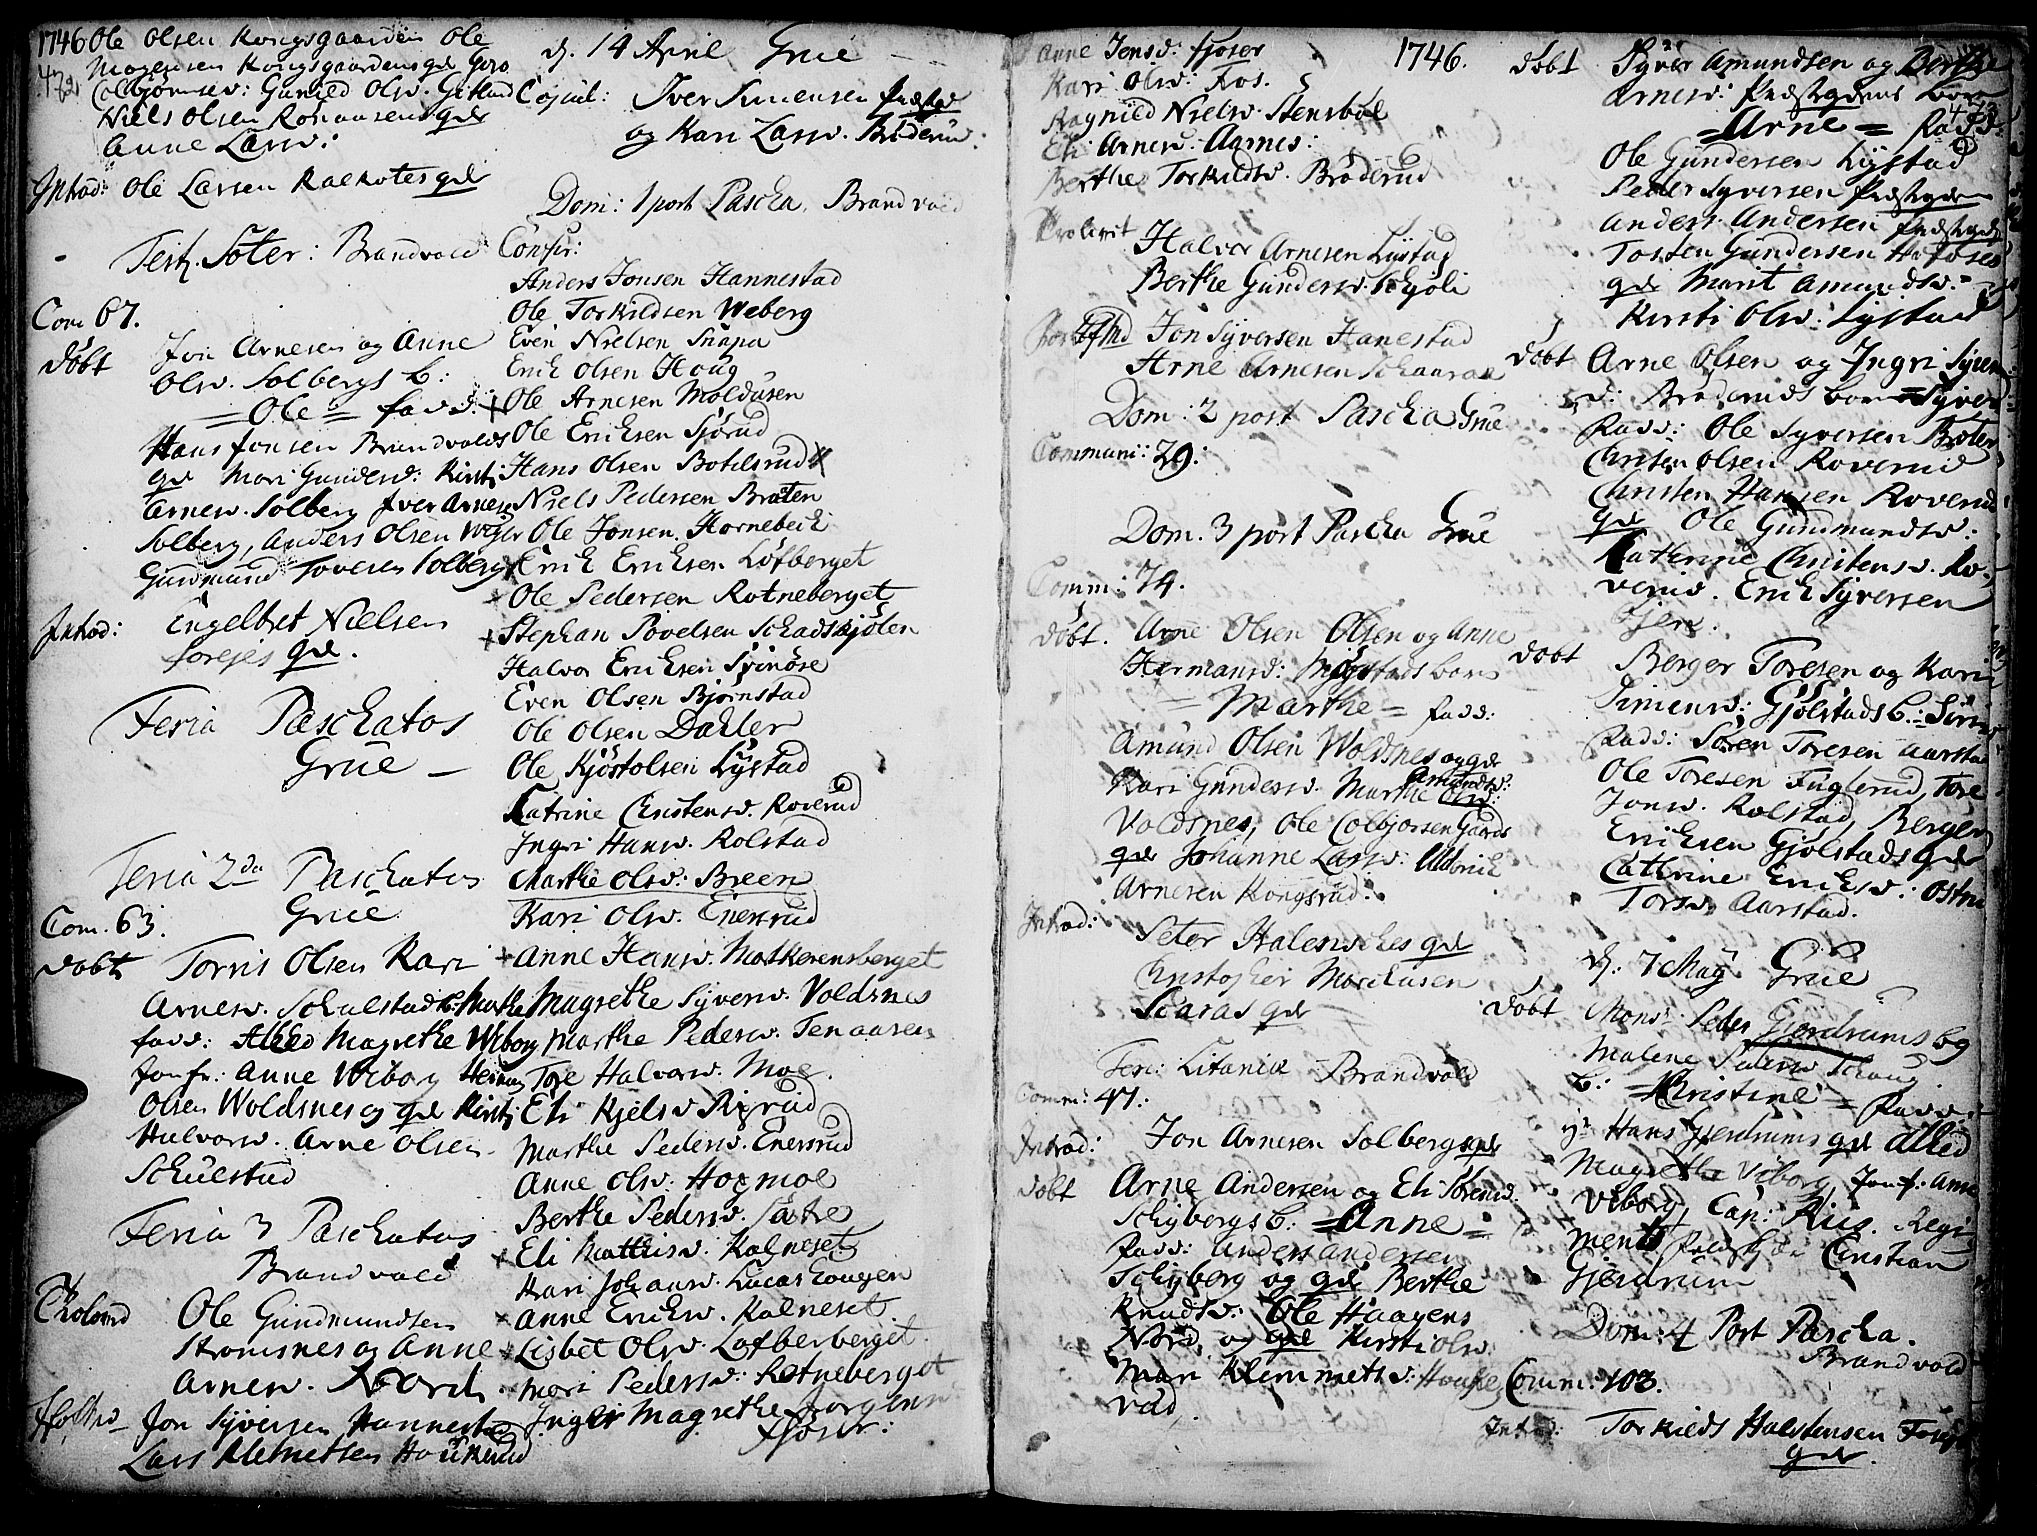 1746 Ole Olsen Kongsgaarden Ole
472 Mogensen Kongsgaardens qde Goro
Colbjørnsd: Gunild Olsd. Gotland
Niels Olsen Ronaasens qde
Anne Larsd:
Introd: Ole Larsen Kalkotes qde
Fest. Soter: Brandvold
Com 67.
døbt Jon Arnesen og Anne
Olsd. Solbergs b:
= Ole = fadd:
Hans Jonsen Brandvolds
qde Mari Gundersd: Kirsti
Arnesd. Solberg Iver Arnesen
Solberg, Anders Olsen
Gundmund Toresen Solberg
Introd: Engelbret Nielsen
qde.
Feria Paschatos
Grue —
Feria 2da Paschatos
Grue
Com. 63.
døbt Torris Olsen Kari
Arnesd. Schulstad b. Marthe
fadd: Alhed Magrethe Wiborg
Jonfr: Anne Wiborg
Olsen Woldsnes og qde Kirsti
Halvorsd. Arne Olsen
Schulstad
Feria 3 Paschatos
Brandvold
Trolovd Ole Gundmundsen
Stromsnes og Anne
Arnesd. Noord
Jon Syversen Hannestad
Lars Klemetsen Houkerud
d. 14 April Grue —
Copul: Iver Simensen Præstgd
og Kari Larsd. Brøderud:
Dom: 1 post Pascha. Brandvold
Confir:
Anders Jonsen Hannestad
Ole Torkildsen Weberg
Even Nielsen Snapa
Erich Olsen Houg
+ Ole Arnesen Moldusen
Ole Erichsen Sjørud
Hans Olsen Botilsrud
Niels Pedersen Braten
Ole Jonsen Hornebech
Erich Erichsen Løfberget
Ole Pedersen Rotneberget
+ Stephan Povelsen Schadskjølen
Halvor Erichsen Svinøse
Even Olsen Bjørnstad
Ole Olsen Dahler
Ole Kjøstolsen Lystad
Catrine Christensd. Roverud
Ingri Hansd. Rolstad
Marthe Olsd: Breen
Kari Olsd. Enersrud
+ Anne Hansd. Maskerensberget
Magrethe Syversd. Voldsnes
Marthe Pedersd. Tenaasen
Tore Halvorsd. Moe.
Eli Kjelsd Rirud
Marthe Pedersd. Enersrud
Anne Olsd. Hogmoe
Berthe Pedersd. Sætre
+ Eli Mattisd. Kalneset
Kari Johansd. Lucashougen
Anne Erichsd. Kalneset
+ Lisbet Olsd. Løfberberget
Mari Pedersd: Rotneberget
Inger Magrethe
Anne Jensd: Fjoser
Kari Olsd: Fos.
Ragnild Nielsd Stensbøl
Eli Arnesd. Aarnes:
Berthe Torkildsd. Brøderud
Trolovit
Halvor Arnesen Lystad
Berthe Gundersd. Schjøli
Jon Syversen Hanestad
Arne Arnesen
Dom: 2 post Pascha Grue
Communi: 29:
Dom. 3 post Pascha Grue
Comm: 74.
døbt. Arne Olsen Olsen og Anne
Hermansd: barn
= Marthe = fadd:
Amund Olsen Woldsnes og qde
Kari Gundersd. Marthe Amundsd:
Voldsnes, Ole Colbjørsen Gaards
qde Johanne Larsd.
Arnesen Kongsrud.
Introd:
Peter qde
Christopher
qde
Fer: Litaniæ Brandvold
Comm: 47:
Introd: Jon Arnesen Solbergs qde
døbt Arne Andersen og Eli Sørensd.
Schybergs b: = Anne =
fadd: Anders Andersen
Schyberg og qde Berthe
Knudsd: Ole Haagens
Nord, og qde Kirsti Olsd
Mari Klemmetsd:
vad.
1746. døbt Syver Amundsen og Berthe
Arnesd: Præstgdens barn
= Arne = Fadd: 473
Ole Gundersen Lystad
Peder Syversen Præstgden
Anders Andersen Præstgd
Tosten Gundersen
qde Marit Amundsd:
Kirsti Olsd: Lystad
døbt Arne Olsen og Ingri Syvers
d: Brøderuds barn = Syver
Fadd: Ole Syversen Braten
Christen Olsen Roverud
Christen Hansen Roverud
qde Ole Gundmundsd:
Catherine Christensd. Ro-
verud. Erich Syversen
døbt Berger Toresen og Kari
Simensd: Gjølstads b. Siri
Fadd: Søren Toresen Aarstad
Ole Toresen Fuglerud, Tore
Jonsd. Rolstad, Berger
Erichsen Gjølstads qde
Cathrine Erichsd:
Torsd. Aarstad.
d. 7 Maj Grue
døbt Mons: Peder Gjerdrums og
Malene Pedersd
b: = Christine = Fadd:
Hans Gjerdrums qde Alhed
Magrethe Viborg Jonf: Anne
Viborg, Cap: Kiis. Regi-
ments Christian
Gjerdrum
Dom: 4 Post Pascha.
Brandvold
Comm: 103.
Introd: Torkield Halstensen
qde.